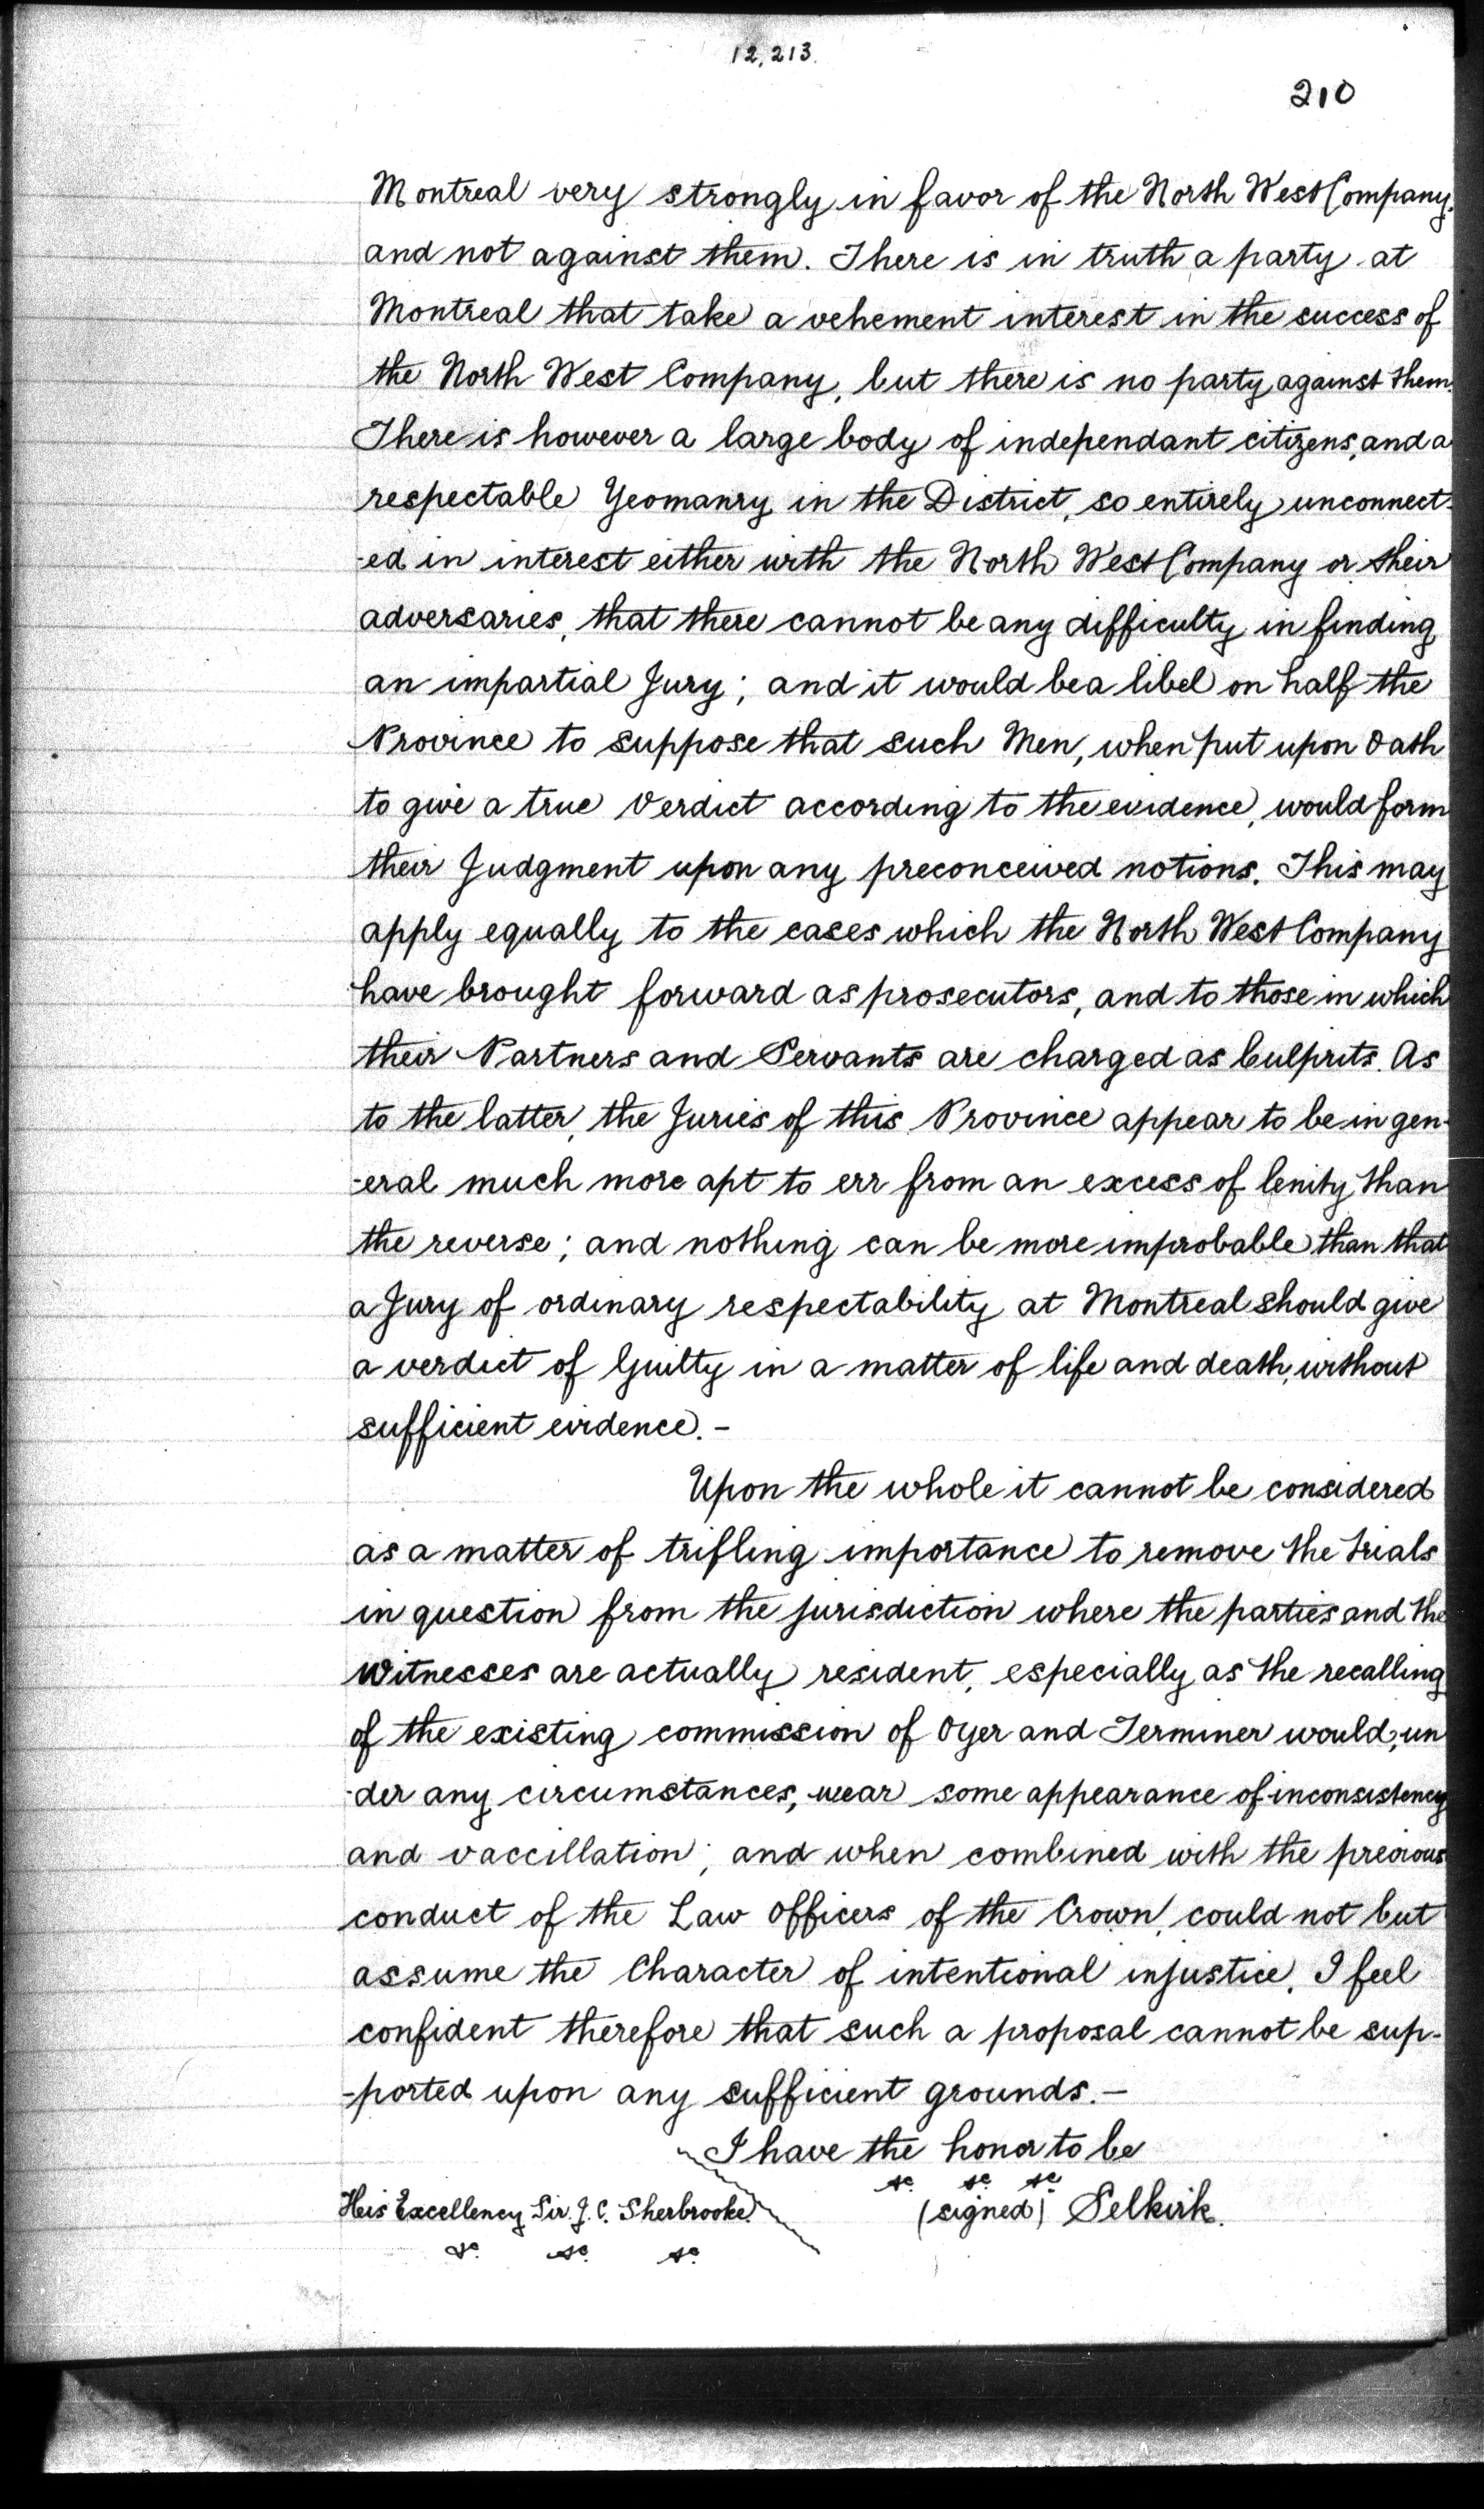 12,213.
210
Montreal very strongly in favor of the North West Company.
and not against them. There is in truth a party at
Montreal that take a vehement interest in the success of
the North West Company, but there is no party against them.
There is however a large body of independant citizens, and a
respectable Yeomanry in the District, so entirely unconnect-
-ed in interest either with the North West Company or their
adversaries, that there cannot be any difficulty in finding
an impartial Jury; and it would be a libel on half the
Province to suppose that such Men, when put upon Oath
to give a true Verdict according to the evidence, would form
their Judgment upon any preconceived notions. This may
apply equally to the cases which the North West Company
have brought forward as prosecutors, and to those in which
their Partners and Servants are charged as Culprits. As
to the latter, the Juries of this Province appear to be in gen-
-eral much more apt to err from an excess of lenity than
the reverse; and nothing can be more improbable than that
a Jury of ordinary respectability at Montreal should give
a verdict of Guilty in a matter of life and death, without
sufficient evidence. -
Upon the whole it cannot be considered
as a matter of trifling importance to remove the trials
in question from the jurisdiction where the parties and the
Witnesses are actually resident, especially as the recalling
of the existing commission of Oyer and Terminer would, un
-der any circumstances, wear some appearance of inconsistency
and vaccillation; and when combined with the previous
conduct of the Law Officers of the Crown, could not but
assume the Character of intentional injustice. I feel
confident therefore that such a proposal cannot be sup-
-ported upon any sufficient grounds. -
I have the honor to be
&c. &c. &c.
(signed) Selkirk.
His Excellency Sir. J. C. Sherbrooke
&c. &c. &c.